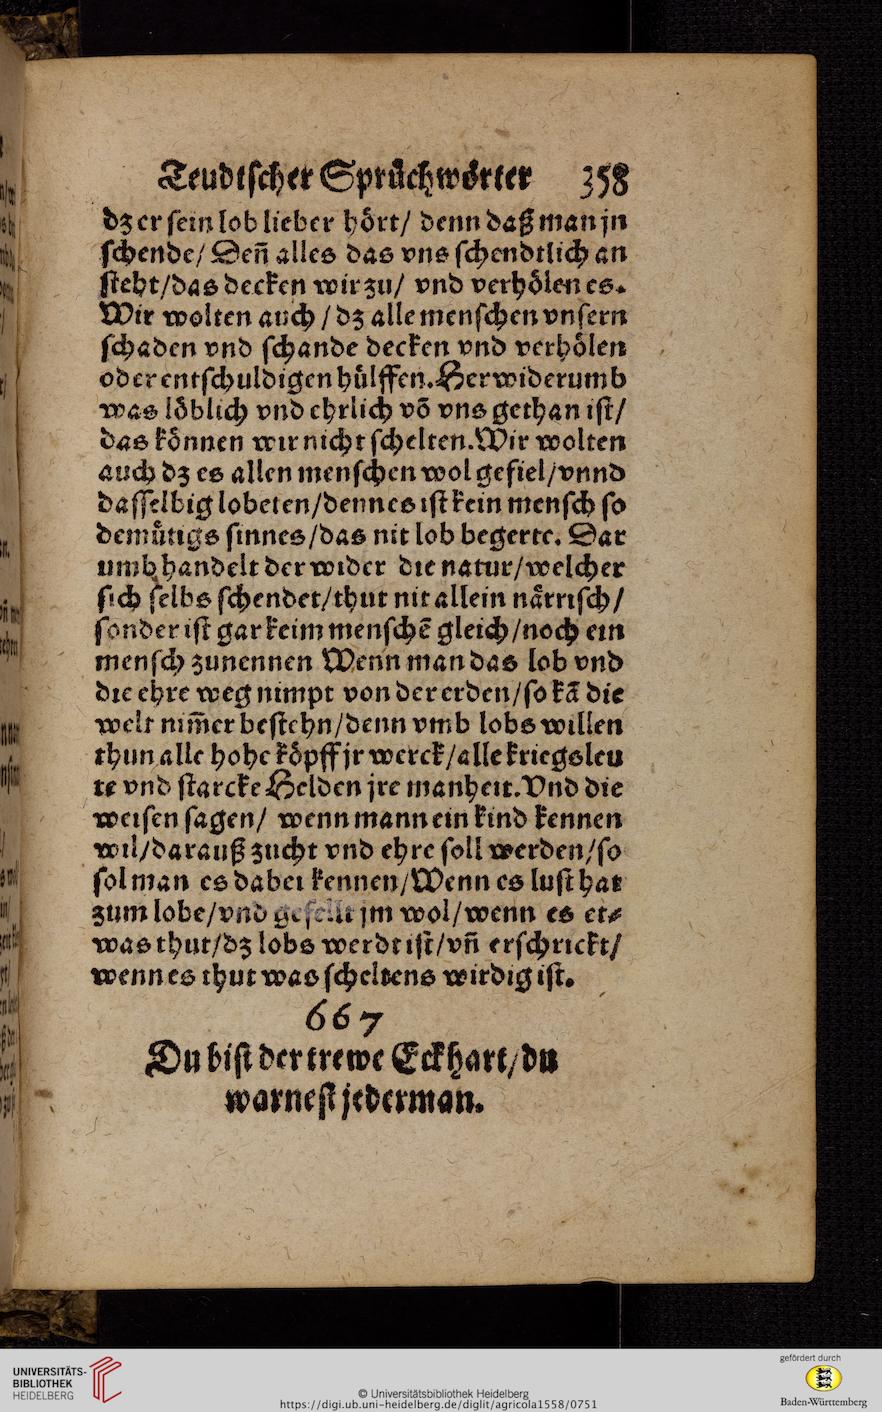 Teudtſcher Sprüchwörter 358
dz er ſein lob lieber hört/ denn daß man jn
ſchende/ Deñ alles das vns ſchendtlich an
ſteht/das decken wir zu/ vnd verhölen es.
Wir wolten auch / dz alle menſchen vnſern
ſchaden vnd ſchande decken vnd verhölen
oder entſchuldigen hülffen. Herwiderumb
was löblich vnd ehrlich võ vns gethan iſt/
das können wir nicht ſchelten. Wir wolten
auch dz es allen menſchen wol gefiel/vnnd
daſſelbig lobeten/denn es iſt kein menſch ſo
demütigs ſinnes/das nit lob begerte. Dar
umb handelt der wider die natur/welcher
ſich ſelbs ſchendet/thut nit allein närriſch/
ſonder iſt gar keim menſchẽ gleich/noch ein
menſch zunennen Wenn man das lob vnd
die ehre weg nimpt von der erden/ſo kã die
welt nim̃er beſtehn/denn vmb lobs willen
thun alle hohe köpff jr werck/alle kriegsleu
te vnd ſtarcke Helden jre manheit. Vnd die
weiſen ſagen/ wenn mann ein kind kennen
wil/darauß zucht vnd ehre ſoll werden/ſo
ſol man es dabei kennen/Wenn es luſt hat
zum lobe/vnd gefellt jm wol/wenn es et⸗
was thut/dz lobs werdt iſt/vñ erſchrickt/
wenn es thut was ſcheltens wirdig iſt.
667
Du biſt der trewe Eckhart/du
warneſt jederman.
UNIVERSITÄTS-
BIBLIOTHEK
HEIDELBERG
© Universitätsbibliothek Heidelberg
https://digi.ub.uni-heidelberg.de/diglit/agricola1558/0751
gefördert durch
Baden-Württemberg